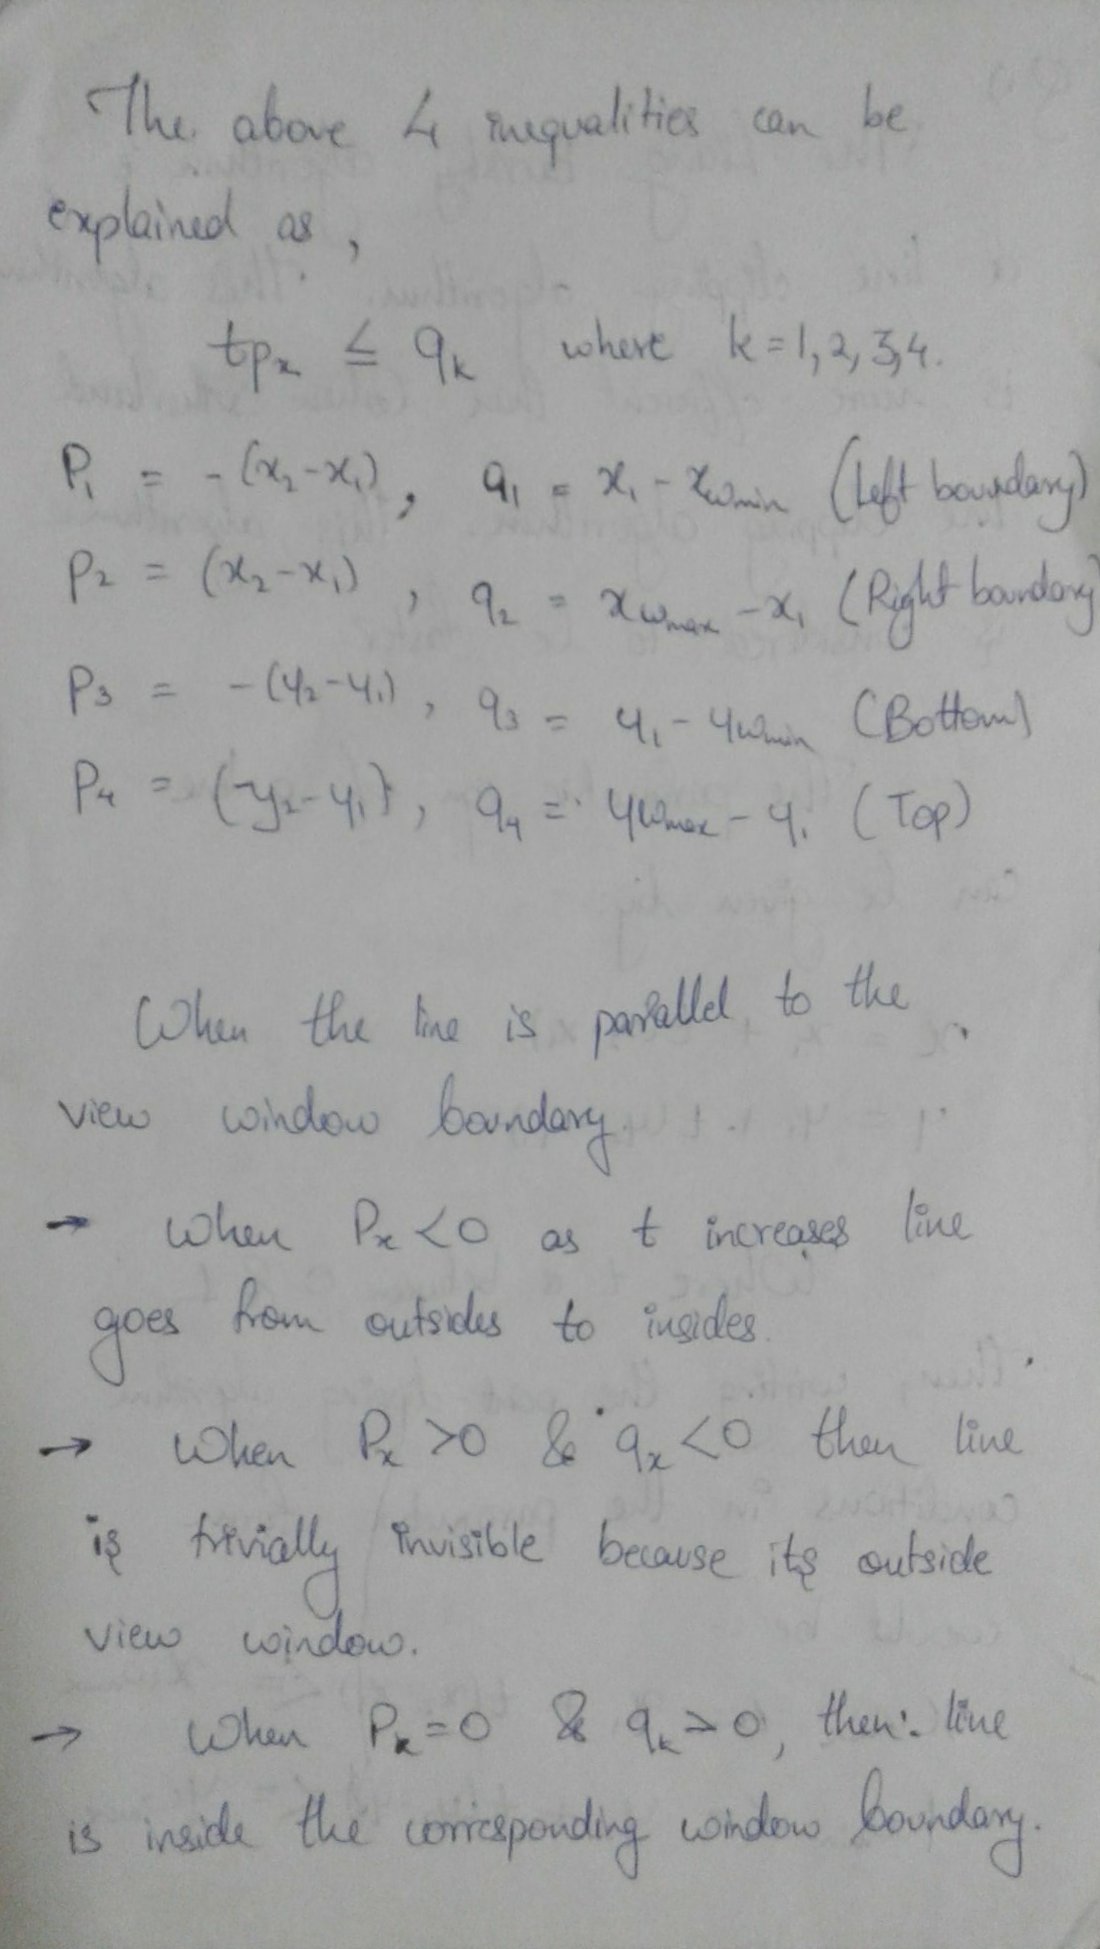 The above 4 inequalities can be
explained as,
tpₓ ≤ qₖ where k=1,2,3,4.
P₁ = -(x₂-x₁), q₁ = x₁ - xwmin (Left boundary)
P₂ = (x₂-x₁), q₂ = xwmax - x₁ (Right boundary)
P₃ = -(y₂-y₁), q₃ = y₁ - ywmin (Bottom)
P₄ = (-y₂-y₁), q₄ = ywmax - y₁ (Top)
When the line is parallel to the
view window boundary.
→ When Pₓ<0 as t increases line
goes from outsides to insides.
→ When Pₓ >0 & qₓ <0 then line
is trivially invisible because its outside
view window.
→ When Pₖ=0 & qₖ>0, then line
is inside the corresponding window boundary.